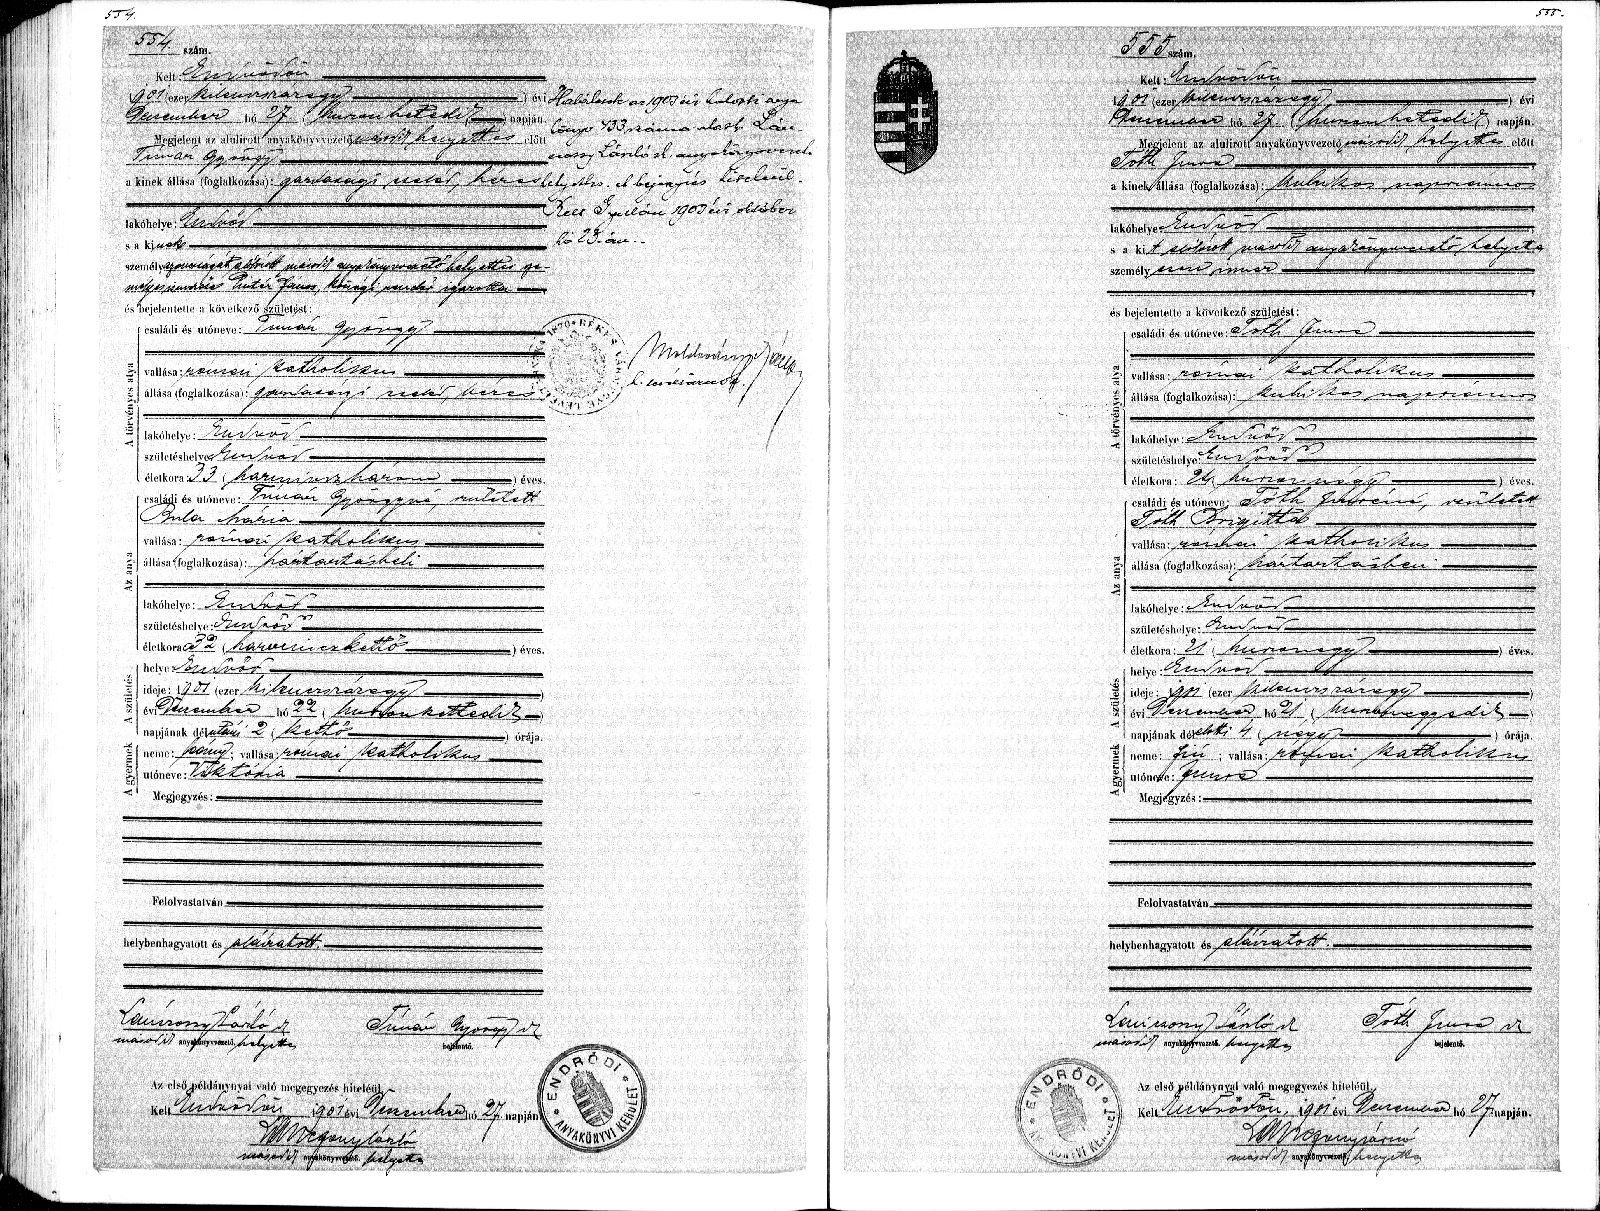 554.
554. szám.
Kelt: Endrődön
1901 (ezer kilenczszázegy) évi
December hó 27 (huszonhetedik) napján.
Megjelent az alulirott anyakönyvvezető másodk helyettes előtt
Timár György
a kinek állása (foglalkozása): gazdasági cseléd, béres
lakóhelye: Endrőd
s a kinek
személyazonosságát előbbirott másodk anyakönyvvezető helyettes
János, községi
és bejelentette a következő születést:
A törvényes atya
családi és utóneve: Timár György
vallása: római katholikus
állása (foglalkozása): gazdasági cseléd, béres
lakóhelye: Endrőd
születéshelye: Endrőd
életkora: 33 (harminczhárom) éves.
Az anya
családi és utóneve: Timár Györgyné, született
Bula Mária
vallása: római katholikus
állása (foglalkozása): háztartásbeli
lakóhelye: Endrőd
születéshelye: Endrőd
életkora: 32 (harminczkettő) éves.
A születés
helye: Endrőd
ideje: 1901 (ezer kilenczszázegy)
évi December hó 22 (huszonkettedik)
napjának délutáni 2 (kettő) órája.
A gyermek
neme: leány; vallása: római katholikus
utóneve: Viktória
Megjegyzés:
Felolvastatván
helybenhagyatott és aláiratott.
Lániczony László sk
másodk anyakönyvvezető. helyettes
Timár György sk
bejelentő.
Az első példánynyal való megegyezés hiteléül
Kelt Endrődön, 1901 évi December hó 27 napján
László
másodk anyakönyvvezető. helyettes
ENDRŐDI ANYAKÖNYVI KERÜLET
Halálozások az 1903 évi halotti anya
könyv 433 száma alatt
László sk. anyakönyvvezető
helyettes.
Kelt Gyulán 1903 évi október
hó 23-án.
BÉKÉS
1870
555.
555 szám.
Kelt: Endrődön
1901 (ezer kilenczszázegy) évi
December hó 27. (huszonhetedik) napján.
Megjelent az alulirott anyakönyvvezető másodk helyettes előtt
Tóth Imre
a kinek állása (foglalkozása): kubikos napszámos
lakóhelye: Endrőd
s a kit előbbirott másodk anyakönyvvezető helyettes
személyesen ismer
és bejelentette a következő születést:
A törvényes atya
családi és utóneve: Tóth Imre
vallása: római katholikus
állása (foglalkozása): kubikos napszámos
lakóhelye: Endrőd
születéshelye: Endrőd
életkora: 24 (huszonnégy) éves.
Az anya
családi és utóneve: Tóth Imréné, született
Tóth Brigitta
vallása: római katholikus
állása (foglalkozása): háztartásbeli
lakóhelye: Endrőd
születéshelye: Endrőd
életkora: 21 (huszonegy) éves.
A születés
helye: Endrőd
ideje: 1901 (ezer kilenczszázegy)
évi December hó 21 (huszonegyedik)
napjának délelőtti 4 (négy) órája.
A gyermek
neme: fiú; vallása: római katholikus
utóneve: Imre
Megjegyzés:
Felolvastatván
helybenhagyatott és aláiratott.
Lániczony László sk
másodk anyakönyvvezető. helyettes
Tóth Imre sk
bejelentő.
Az első példánynyal való megegyezés hiteléül
Kelt Endrődön, 1901 évi December hó 27 napján.
László
másodk anyakönyvvezető. helyettes
ENDRŐDI ANYAKÖNYVI KERÜLET